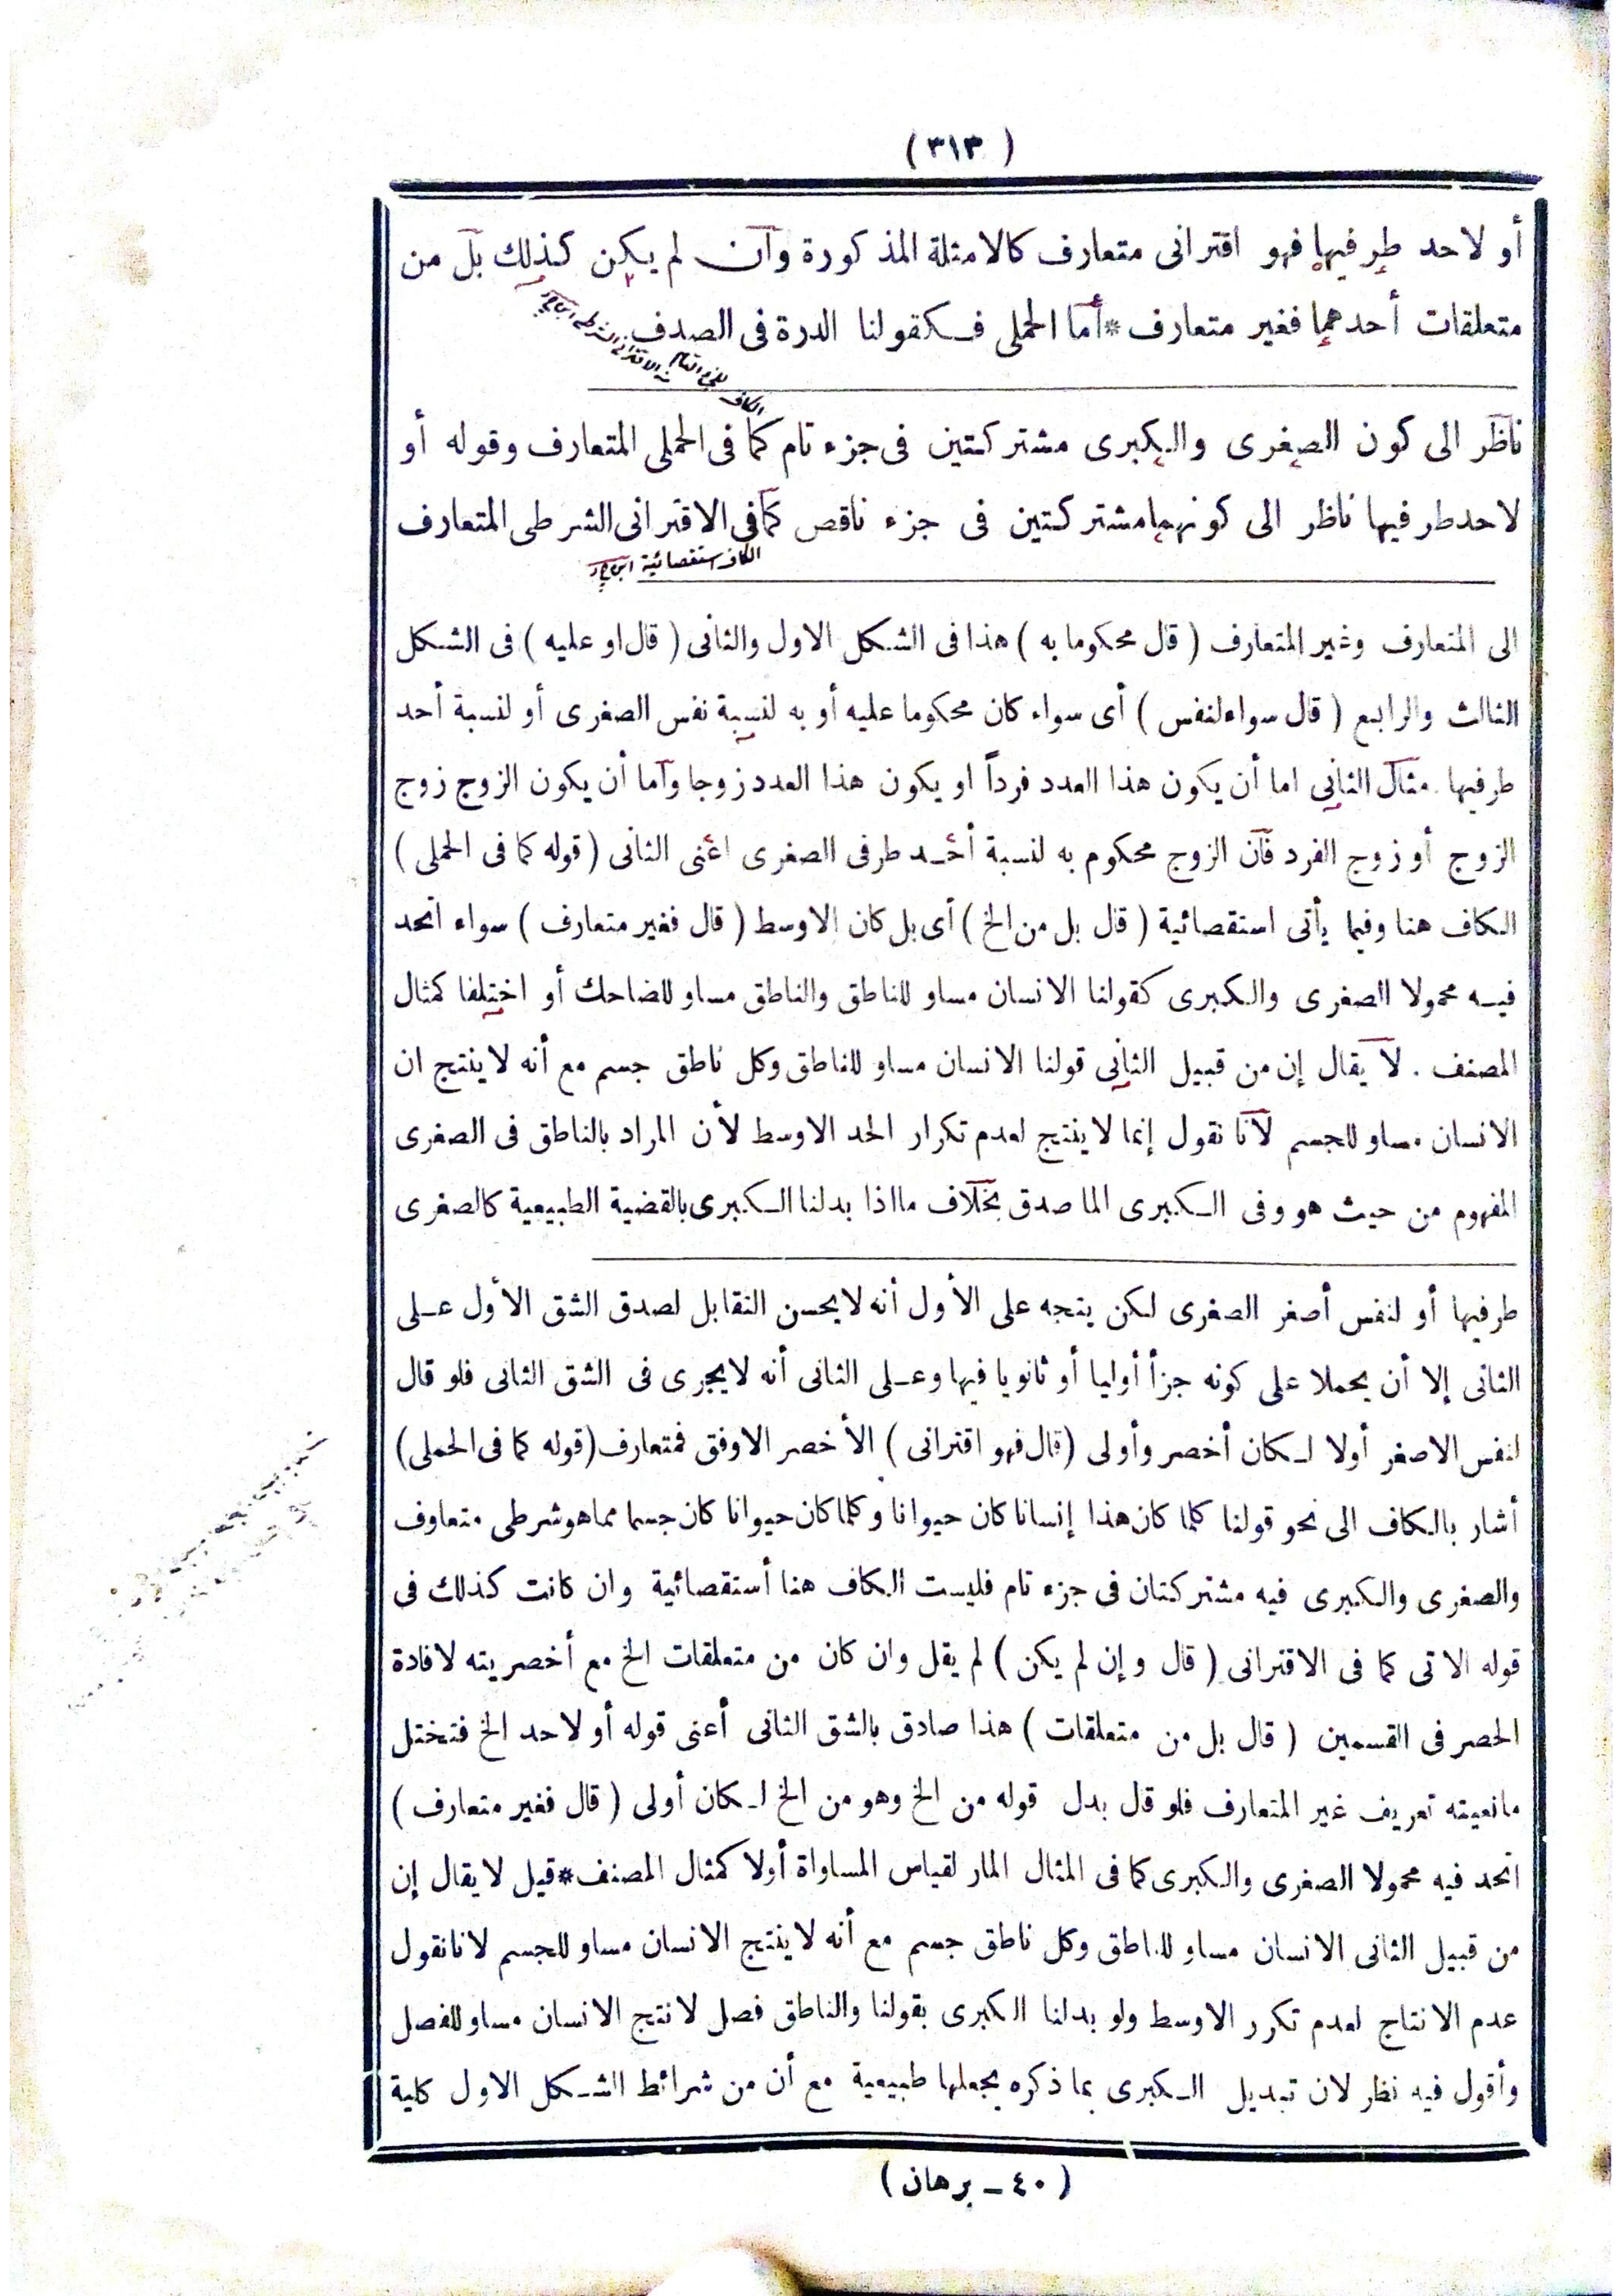 ( ٣١٣ )
أو لاحد طرفيها فهو اقترانى متعارف كالامثلة المذكورة وان لم يكن كذلك بل من
متعلقات أحدهما فغير متعارف * أما الحملى فكقولنا الدرة فى الصدف
ناظر الى كون الصغرى والكبرى مشتركتين فى جزء تام كما فى الحملى المتعارف وقوله أو
لاحد طرفيها ناظر الى كونهما مشتركتين فى جزء ناقص كما فى الاقترانى الشرطى المتعارف
الكاف استقصائية
الى المتعارف وغير المتعارف ( قال محكوما به ) هذا فى الشكل الاول والثانى ( قال او عليه ) فى الشكل
الثالث والرابع ( قال سواء لنفس ) أى سواء كان محكوما عليه أو به لنسبة نفس الصغرى أو لنسبة أحد
طرفيها . مثال الثانى اما أن يكون هذا العدد فرداً او يكون هذا العدد زوجا وأما أن يكون الزوج زوج
الزوج أو زوج الفرد فان الزوج محكوم به لنسبة أحد طرفى الصغرى اعنى الثانى ( قوله كما فى الحملى )
الكاف هنا وفيما يأتى استقصائية ( قال بل من الخ ) أى بل كان الاوسط ( قال فغير متعارف ) سواء اتحد
فيه محمولا الصغرى والكبرى كقولنا الانسان مساو للناطق والناطق مساو للضاحك أو اختلفا كمثال
المصنف . لا يقال إن من قبيل الثانى قولنا الانسان مساو للناطق وكل ناطق جسم مع أنه لا ينتج ان
الانسان مساو للجسم لانا نقول إنما لا ينتج لعدم تكرار الحد الاوسط لأن المراد بالناطق فى الصغرى
المفهوم من حيث هو وفى الكبرى الما صدق بخلاف ما اذا بدلنا الكبرى بالقضية الطبيعية كالصغرى
طرفيها أو لنفس أصغر الصغرى لكن يتجه على الأول أنه لا يحسن التقابل لصدق الشق الأول على
الثانى إلا أن يحملا على كونه جزأ أوليا أو ثانويا فيها وعلى الثانى أنه لا يجرى فى الشق الثانى فلو قال
لنفس الاصغر أولا لكان أخصر وأولى ( قال فهو اقترانى ) الأخصر الاوفق فمتعارف ( قوله كما فى الحملى )
أشار بالكاف الى نحو قولنا كلما كان هذا إنسانا كان حيوانا وكلما كان حيوانا كان جسما مما هو شرطى متعاوف
والصغرى والكبرى فيه مشتركتان فى جزء تام فليست الكاف هنا أستقصائية وان كانت كذلك فى
قوله الاتى كما فى الاقترانى ( قال وإن لم يكن ) لم يقل وان كان من متعلقات الخ مع أخصريته لافادة
الحصر فى القسمين ( قال بل من متعلقات ) هذا صادق بالشق الثانى أعنى قوله أو لاحد الخ فتختل
مانعيته تعريف غير المتعارف فلو قال بدل قوله من الخ وهو من الخ لكان أولى ( قال فغير متعارف )
اتحد فيه محمولا الصغرى والكبرى كما فى المثال المار لقياس المساواة أولا كمثال المصنف * قيل لا يقال إن
من قبيل الثانى الانسان مساو للناطق وكل ناطق جسم مع أنه لا ينتج الانسان مساو للجسم لانا نقول
عدم الانتاج لعدم تكرر الاوسط ولو بدلنا الكبرى بقولنا والناطق فصل لانتج الانسان مساو للفصل
وأقول فيه نظر لان تبديل الكبرى بما ذكره يجعلها طبيعية مع أن من شرائط الشكل الاول كلية
( ٤٠ ــ برهان )